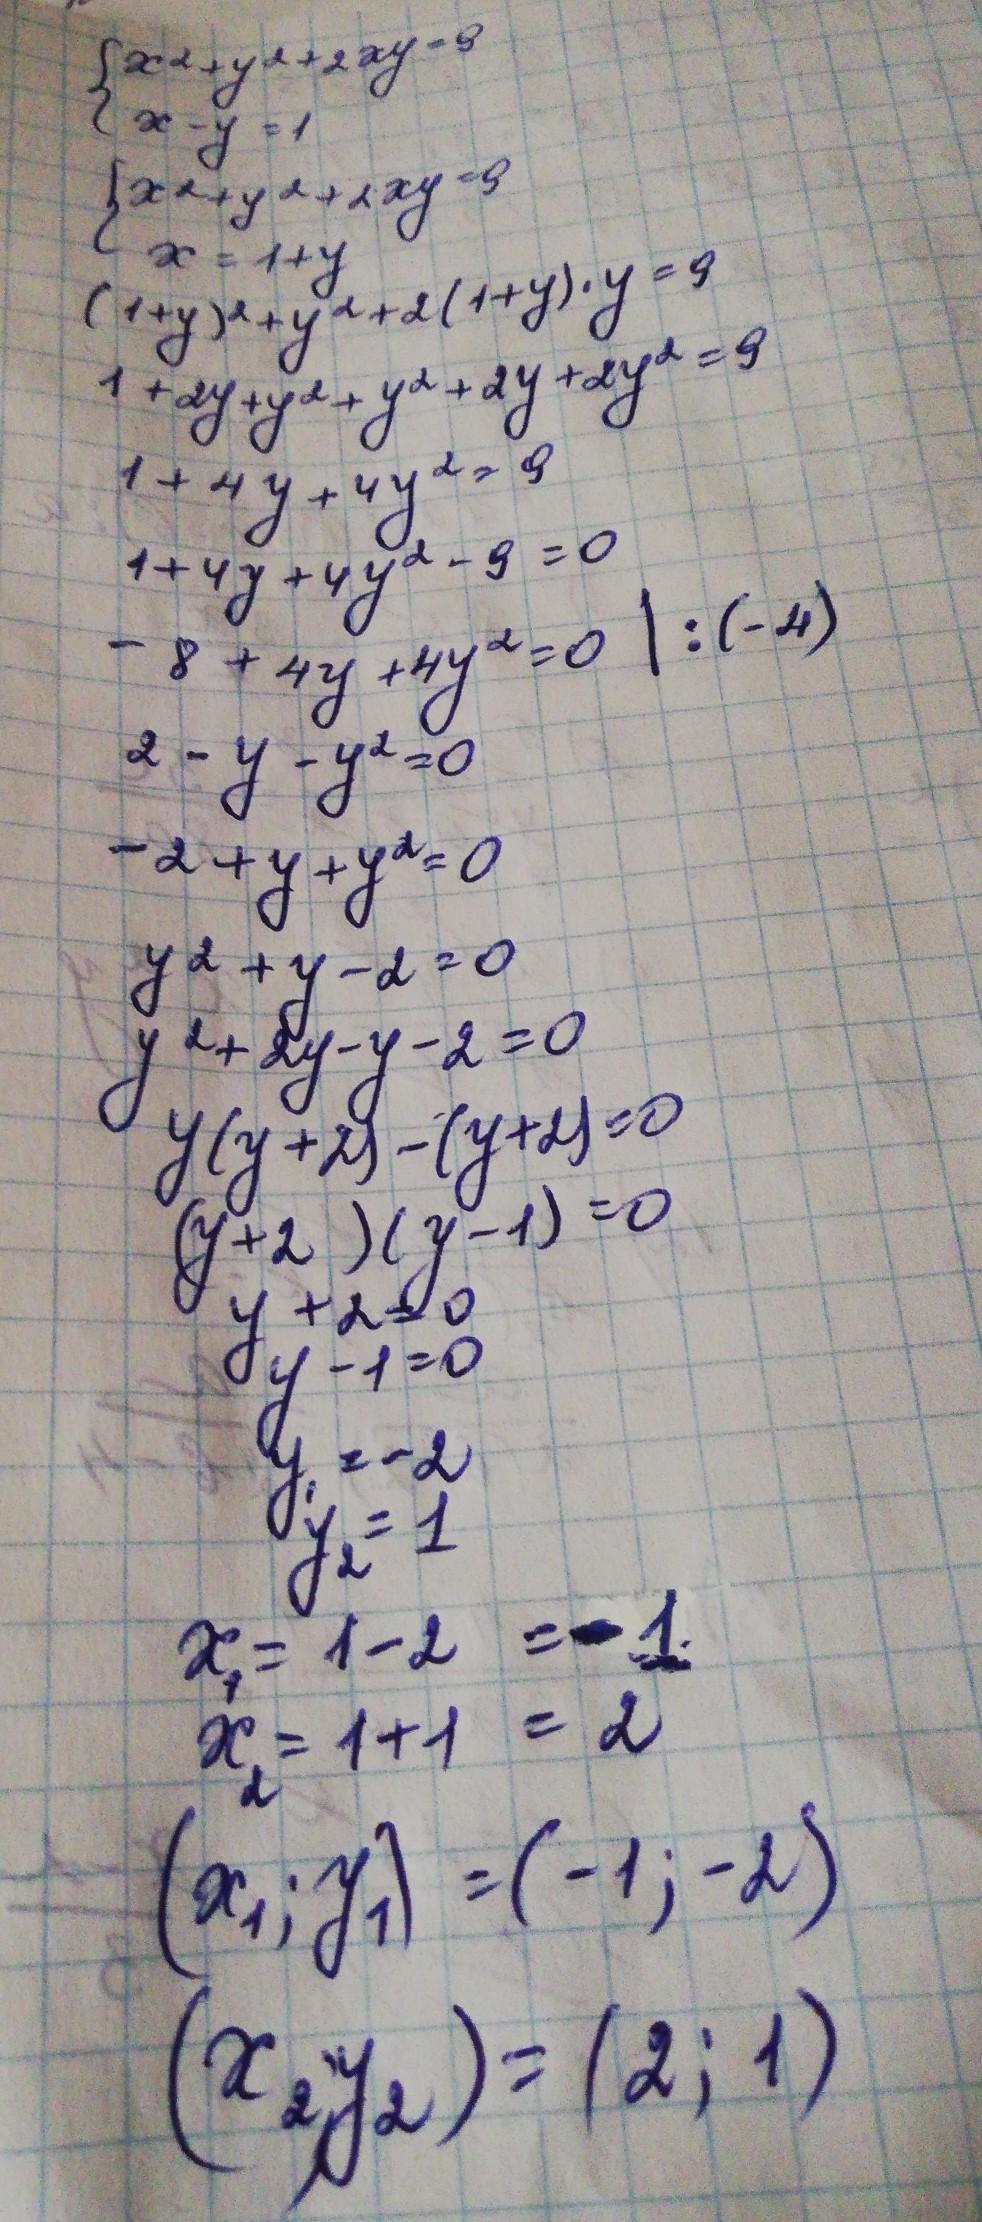 {x²+y²+2xy=9
x-y=1
{x²+y²+2xy=9
x=1+y
(1+y)²+y²+2(1+y)·y=9
1+2y+y²+y²+2y+2y²=9
1+4y+4y²=9
1+4y+4y²-9=0
-8+4y+4y²=0 |:(-4)
2-y-y²=0
-2+y+y²=0
y²+y-2=0
y²+2y-y-2=0
y(y+2)-(y+2)=0
(y+2)(y-1)=0
y+2=0
y-1=0
y₁=-2
y₂=1
x₁=1-2=-1
x₂=1+1=2
(x₁;y₁)=(-1;-2)
(x₂;y₂)=(2;1)